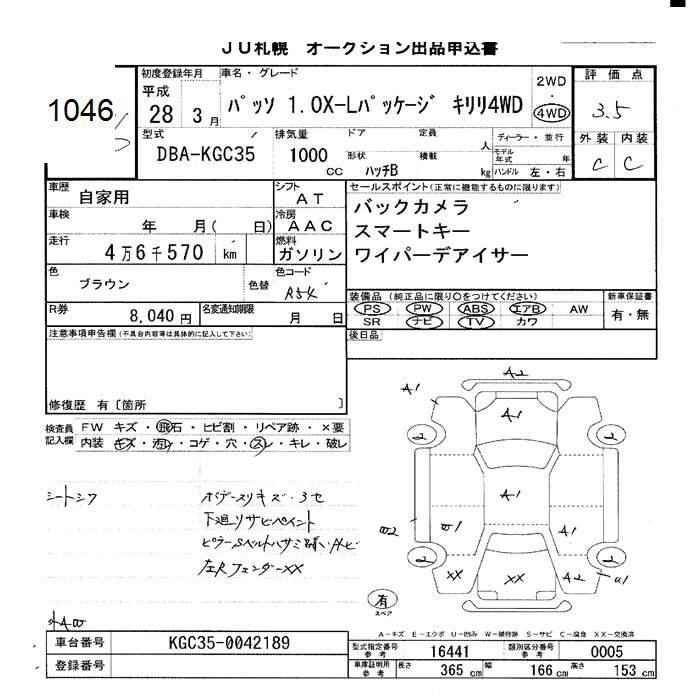 JU札幌 オークション出品申込書
1046
初度登録年月 車名・グレード
平成
28 3月
パッソ 1.0X-Lパッケージ キリリ4WD
2WD
・
4WD
評価点
3.5
外装 内装
C C
型式
DBA-KGC35
排気量
1000 CC
ドア 定員 人
形状 積載 kg
ハッチB
ディーラー・並行
モデル年式 年
ハンドル 左・右
車歴 自家用
シフト AT
車検 年 月( 日)
冷房 AAC
走行 4万6千570 km
燃料 ガソリン
色 ブラウン 色替
色コード R54
R券 8,040円
名変通知期限 月 日
セールスポイント(正常に機能するものに限ります)
バックカメラ
スマートキー
ワイパーデアイサー
装備品(純正品に限り○をつけてください)
PS PW ABS エアB AW
SR ナビ TV カワ
新車保証書
有・無
後日品
注意事項申告欄(不具合内容等は具体的に記入して下さい)
修復歴 有〔箇所 〕
検査員記入欄
FW キズ・飛石・ヒビ割・リペア跡・×要
内装 キズ・汚れ・コゲ・穴・スレ・キレ・破レ
シートシワ
ボデースリキズ・3セ
下廻リサビペイント
左Rフェンダーxx
A2
A1
A1
2 2
A1
W2 W1 A1
2 2
XX XX A2 U1
有
スペア
A-キズ E-エクボ U-凹み W-補修跡 S-サビ C-腐食 XX-交換済
車台番号 KGC35-0042189
登録番号
型式指定番号 参考 16441
類別区分番号 参考 0005
車庫証明用 参考 長さ 365 cm 幅 166 cm 高さ 153 cm